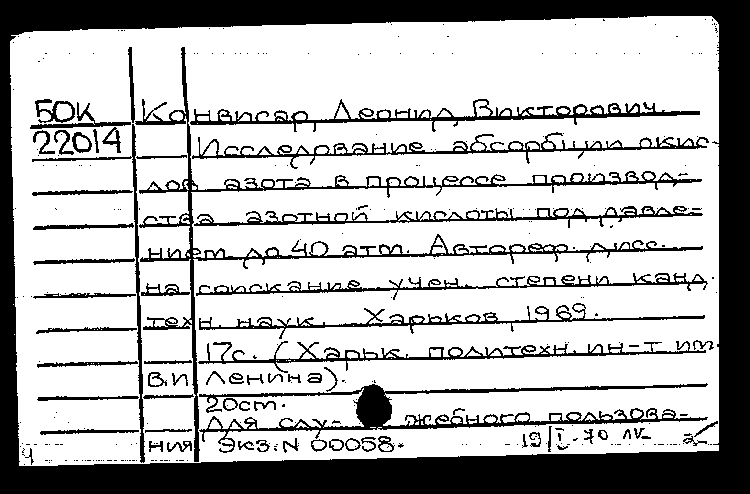 БОК Конвисар, Леонид Викторович.
22014 Исследование абсорбции окис-
лов азота в процессе производ-
ства азотной кислоты под давле-
нием до 40 атм. Автореф. дисс.
на соискание учен. степени канд.
техн. наук. Харьков, 1969.
17с. (Харьк. политехн. ин-т им.
В.И. Ленина).
20ст.
Для слу- жебного пользова-
ния Экз. N 00058. 19/I-70